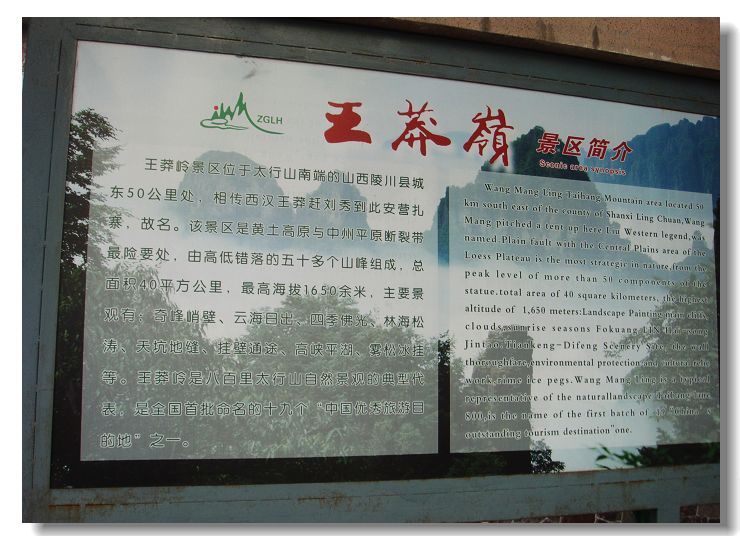 ZGLH
王莽嶺 景区简介
Scenic area synopsis
王莽岭景区位于太行山南端的山西陵川县城
东50公里处，相传西汉王莽赶刘秀到此安营扎
寨，故名。该景区是黄土高原与中州平原断裂带
最险要处，由高低错落的五十多个山峰组成，总
面积40平方公里，最高海拔1650余米，主要景
观有：奇峰峭壁、云海日出、四季佛光、林海松
涛、天坑地缝、挂壁通途、高峡平湖、雾松冰挂
等。王莽岭是八百里太行山自然景观的典型代
表；是全国首批命名的十九个“中国优秀旅游目
的地”之一。
Wang Mang Ling Taihang Mountain area located 50
km south east of the county of Shanxi Ling Chuan,Wang
Mang pitched a tent up here Liu Western legend,was
named.Plain fault with the Central Plains area of the
Loess Plateau is the most strategic in nature,from the
peak level of more than 50 components of the
statue.total area of 40 square kilometers, the highest
altitude of 1,650 meters:Landscape Painting main cliffs,
clouds,sunrise seasons Fokuang LIN Hai-song
Jintao,Tiankeng-Difeng Scenery Safe, the wall
thoroughfare,environmental protection and cultural relic
work,rime ice pegs.Wang Mang Ling is a typical
representative of the naturallandscape Taihang
800,is the name of the first batch of "China's
outstanding tourism destination"one.